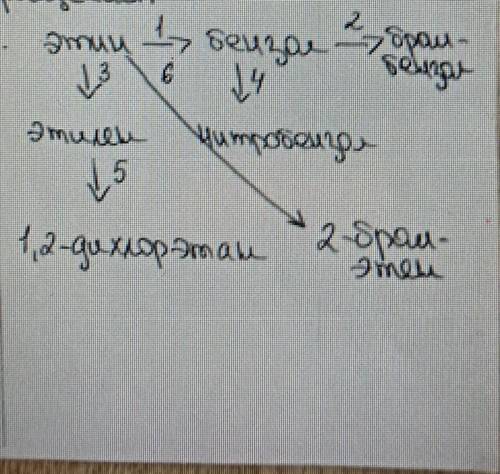 этин 1 бензол 2 бром-
бензол
3 6 4
этилен нитробензол
5
1,2-дихлорэтан 2-бром-
этен